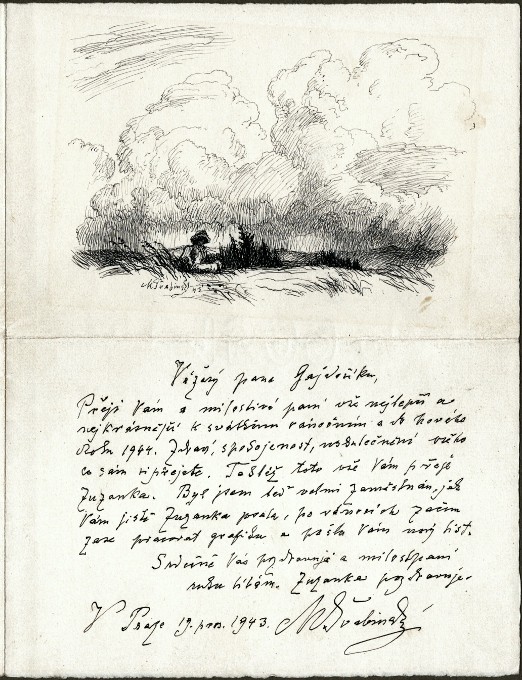 M Švabinský 43
Vážený pane Gajdošíku,
Přeji Vám a milostivé paní vše nejlepší a
nejkrásnější k svátkům vánočním a do Nového
Roku 1944. Zdraví, spokojenost, uskutečnění všeho
co sám si přejete. Totéž toto vše Vám přeje
Zuzanka. Byl jsem teď velmi zaměstnán, jak
Vám jistě Zuzanka psala, po vánocích začnu
zase pracovat grafiku a pošlu Vám nový list.
Srdečně Vás pozdravuji a milostpaní
ruku líbám. Zuzanka pozdravuje.
V Praze 19. pros. 1943. M. Švabinský